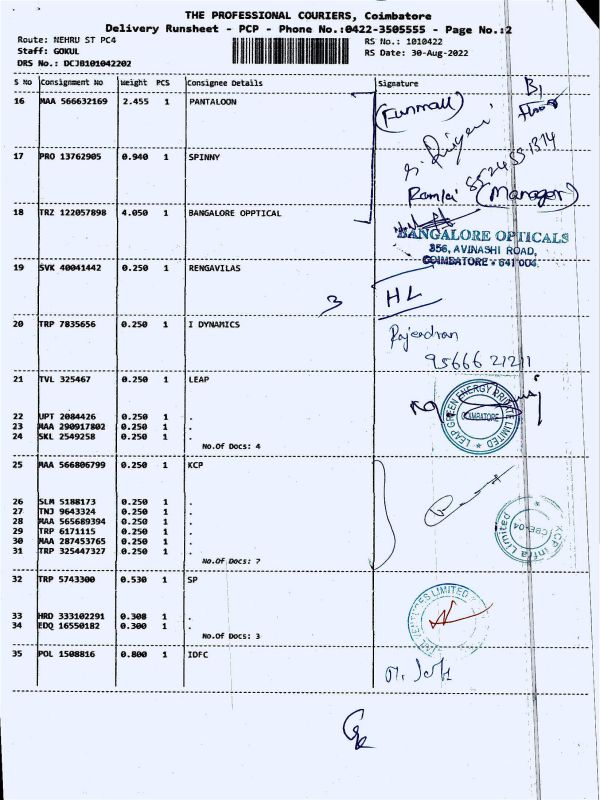 THE PROFESSIONAL COURIERS, Coimbatore
Delivery Runsheet - PCP - Phone No.:0422-3505555 - Page No.:2
Route: NEHRU ST PC4 RS No.: 1010422
Staff: GOKUL RS Date: 30-Aug-2022
DRS No.: DCJB101042202
S No Consignment No Weight PCS Consignee Details Signature
B1
16 MAA 566632169 2.455 1 PANTALOON
(Funmall)
17 PRO 13762905 0.940 1 SPINNY
(Manager)
18 TRZ 122057898 4.050 1 BANGALORE OPPTICAL
BANGALORE OPTICALS
856, AVINASHI ROAD,
COIMBATORE - 641 004.
19 SVK 40041442 0.250 1 RENGAVILAS
3 HL
20 TRP 7835656 0.250 1 I DYNAMICS
Rajendran
95666 21211
21 TVL 325467 0.250 1 LEAP
LEAP GREEN ENERGY PRIVATE LIMITED
COIMBATORE
22 UPT 2084426 0.250 1 .
23 MAA 290917802 0.250 1 .
24 SKL 2549258 0.250 1 .
No.Of Docs: 4
25 MAA 566806799 0.250 1 KCP
KCP Infra Limited
CBE-04
26 SLM 5188173 0.250 1 .
27 TNJ 9643324 0.250 1 .
28 MAA 565689394 0.250 1 .
29 TRP 6171115 0.250 1 .
30 MAA 287453765 0.250 1 .
31 TRP 325447327 0.250 1 .
No.Of Docs: 7
32 TRP 5743300 0.530 1 SP
LIMITED
33 HRD 333102291 0.308 1 .
34 EDQ 16550182 0.300 1 .
No.Of Docs: 3
35 POL 1508816 0.800 1 IDFC